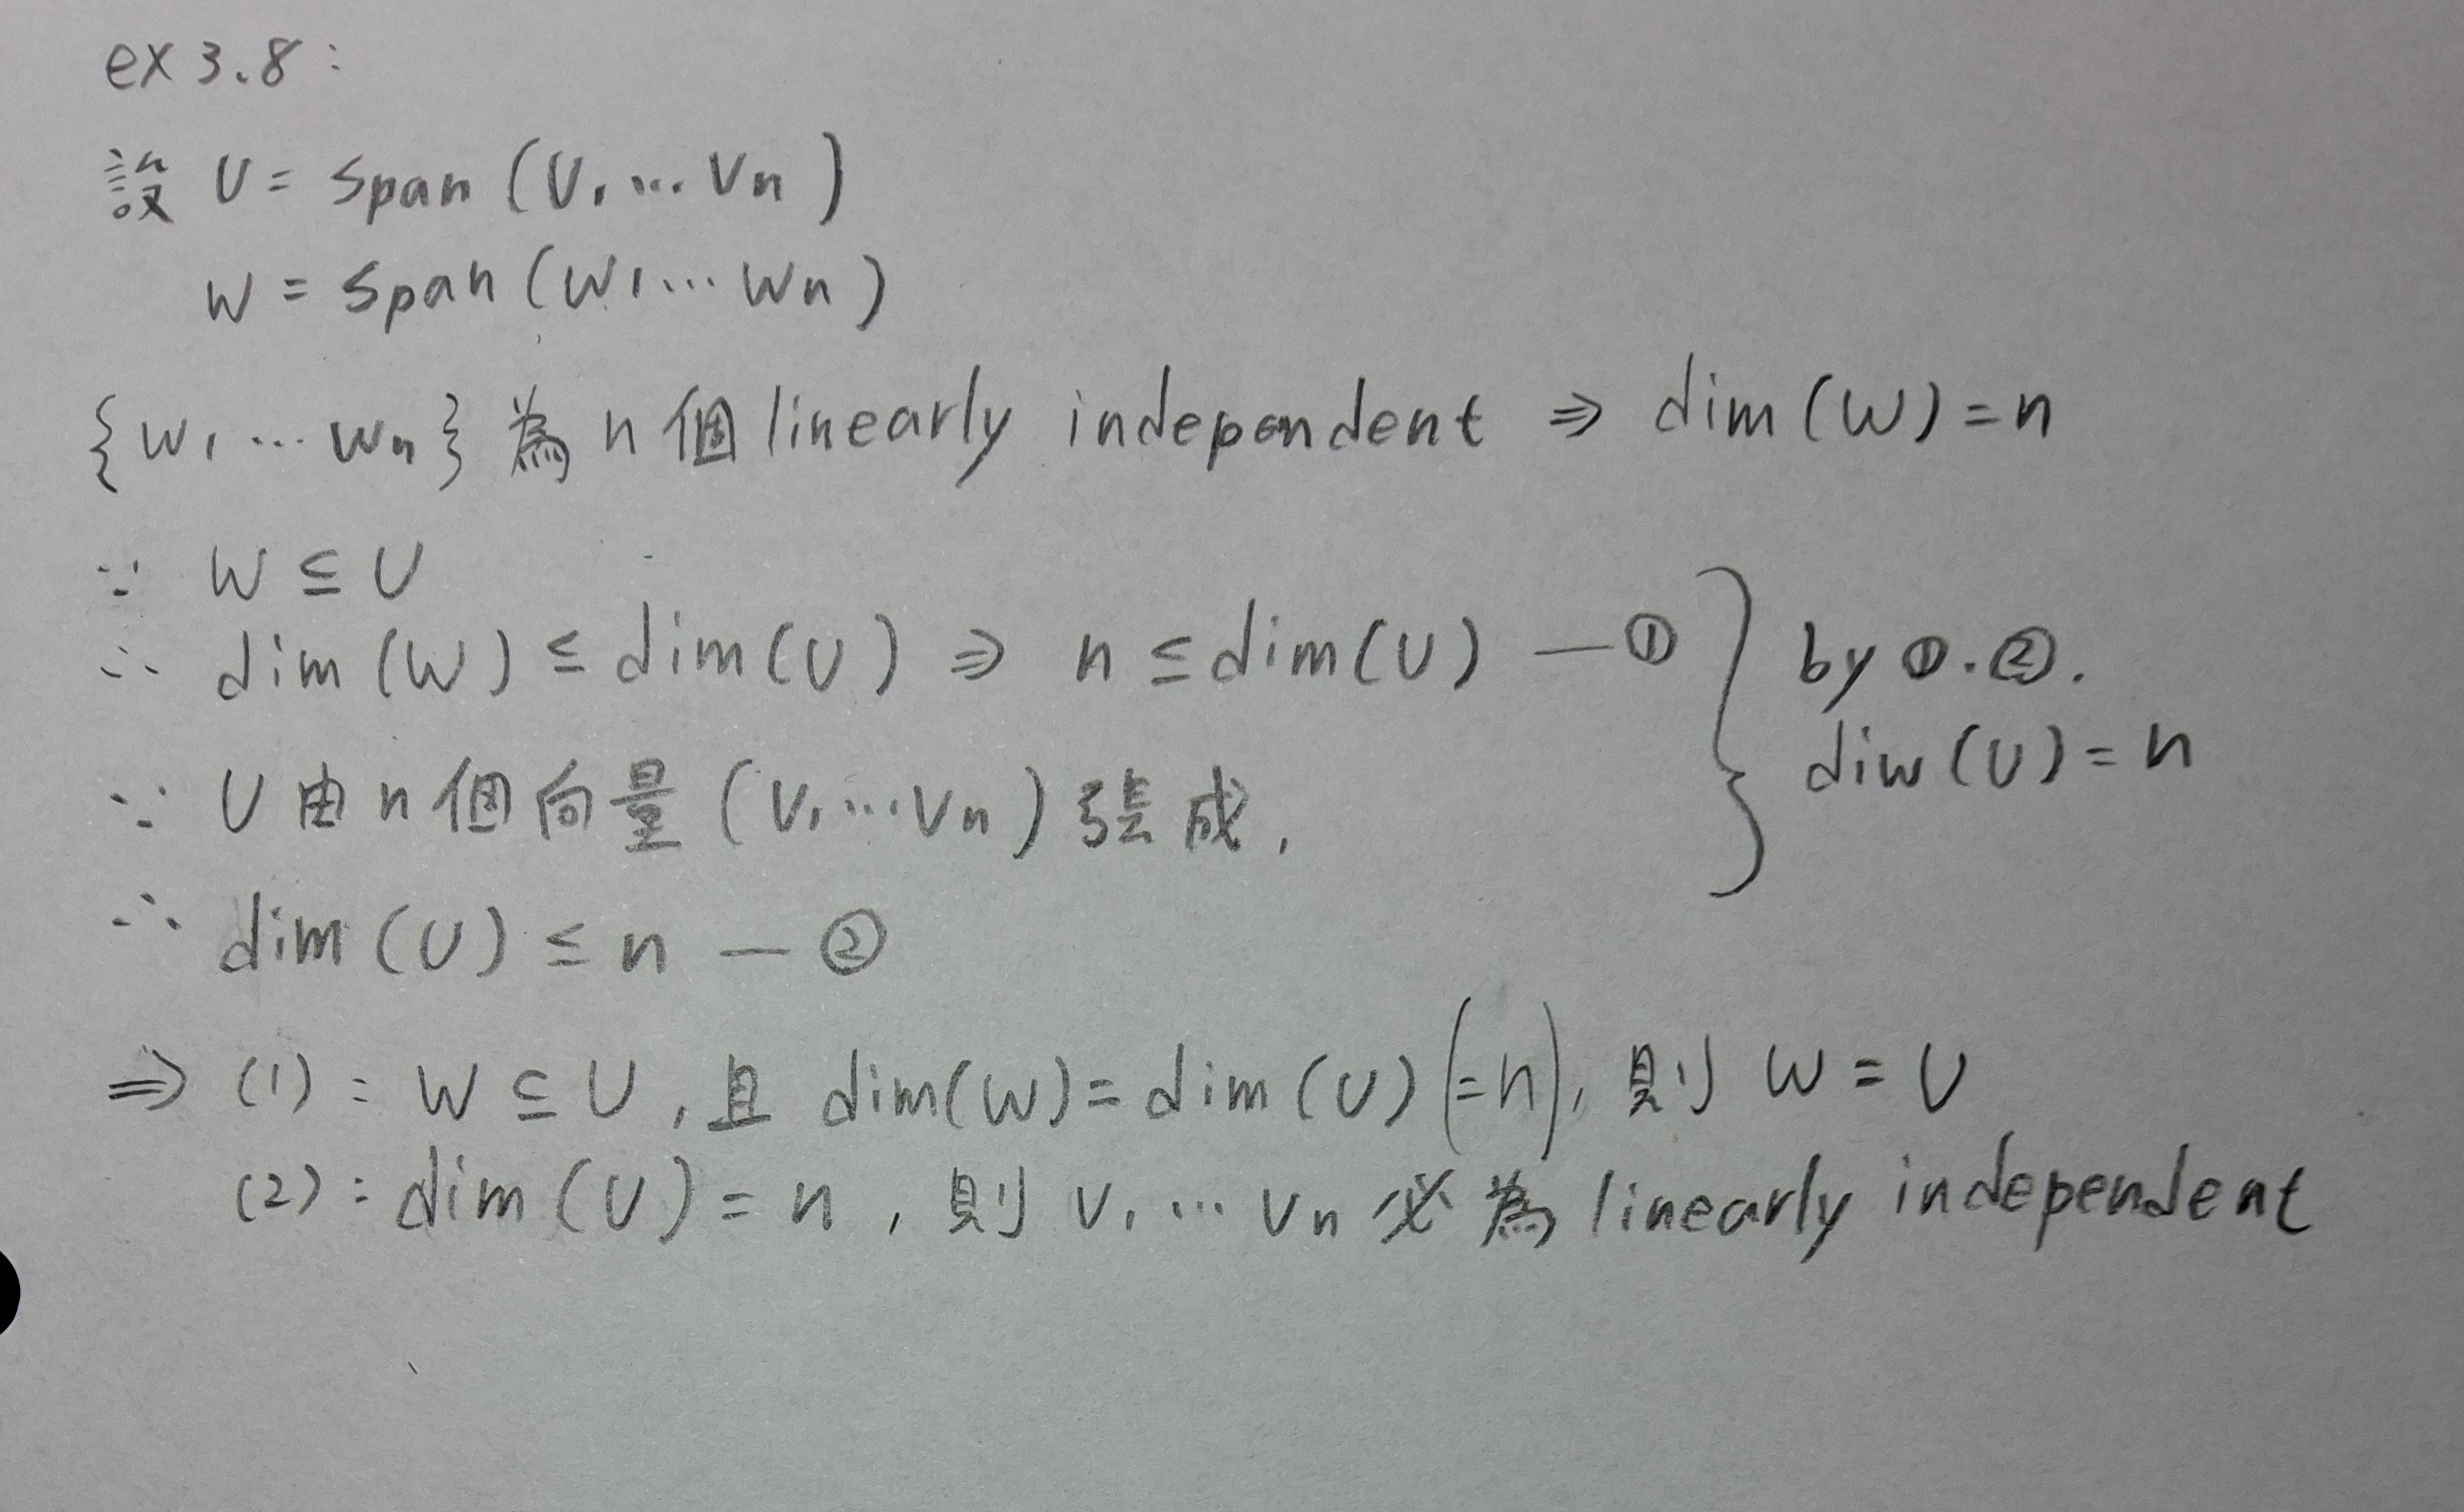 ex 3.8:
設 U = span (v1 ... vn)
W = span (w1 ... wn)
{w1 ... wn} 為 n 個 linearly independent ⇒ dim (W) = n
∵ W ⊆ U
∴ dim (W) ≤ dim (U) ⇒ n ≤ dim (U) — ①
by ①.②.
dim (U) = n
∵ U 由 n 個向量 (v1 ... vn) 張成,
∴ dim (U) ≤ n — ②
⇒ (1): W ⊆ U, 且 dim(W) = dim (U) (=n), 則 W = U
(2): dim (U) = n, 則 v1 ... vn 必為 linearly independent